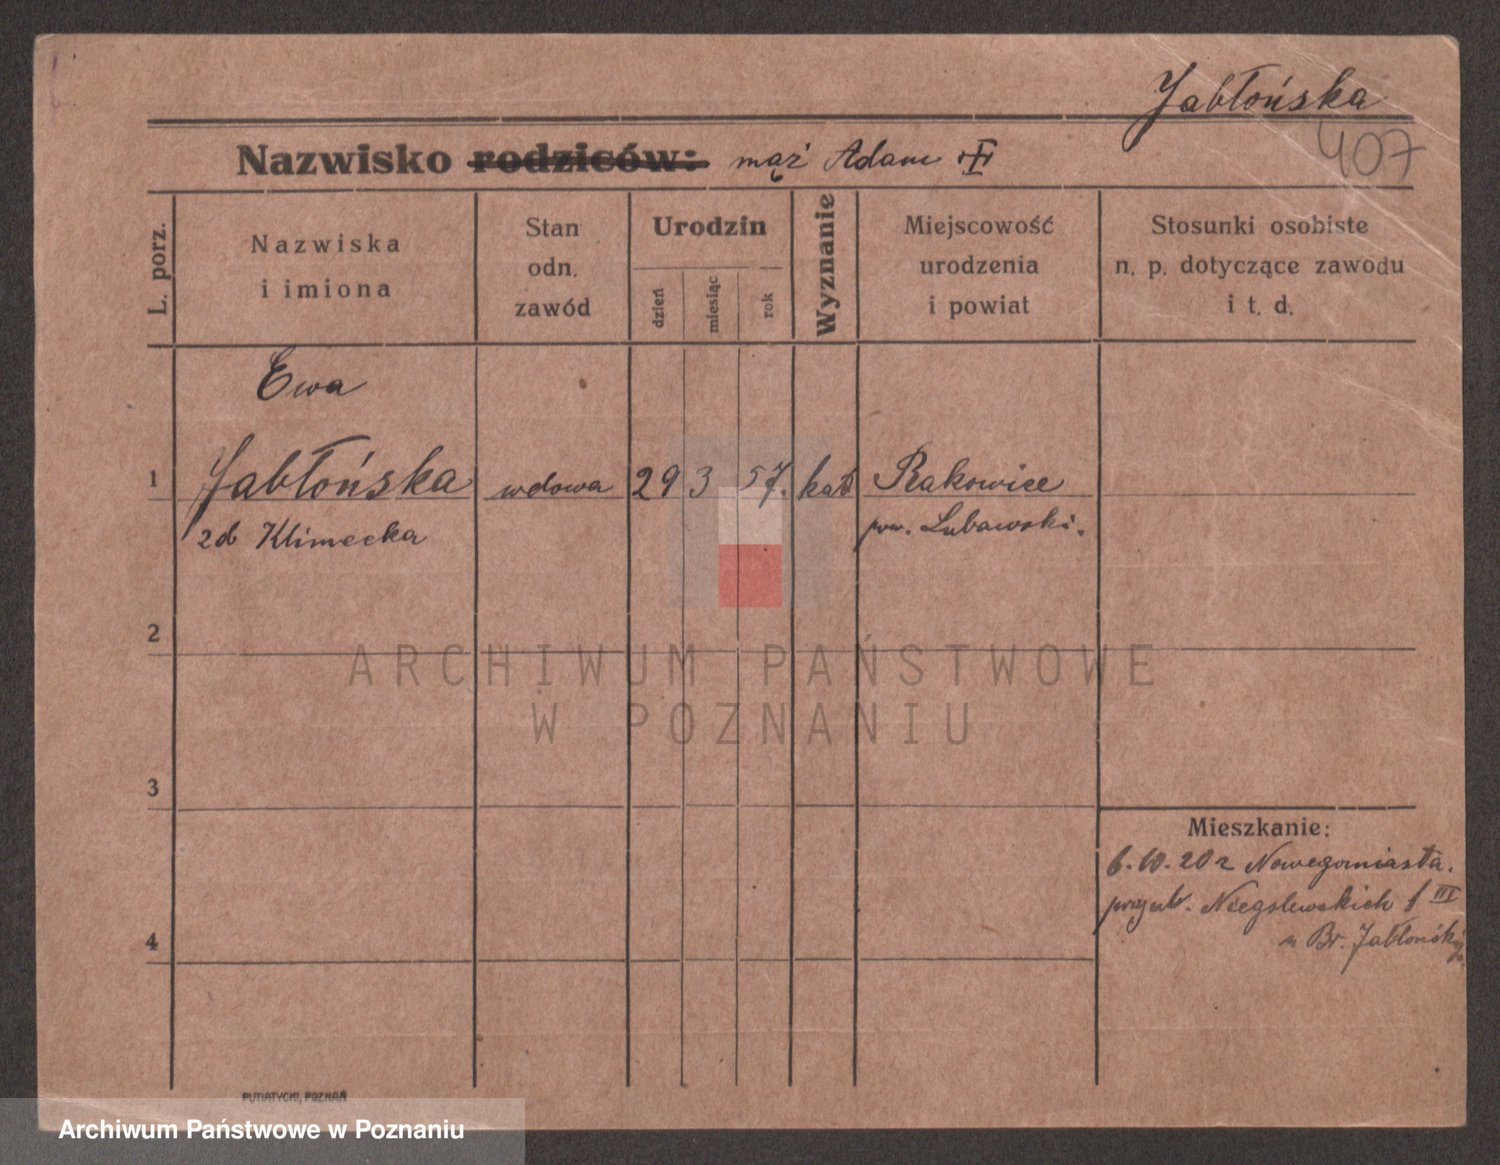 Jabłońska
407
Nazwisko rodziców: mąż Adam
L. porz.
Nazwiska i imiona
Stan odn. zawód
Urodzin
dzień
miesiąc
rok
Wyznanie
Miejscowość urodzenia i powiat
Stosunki osobiste n. p. dotyczące zawodu i t. d.
Ewa
1 Jabłońska wdowa 29 3 57. kat Rakowice
2d Klimecka pow. Lubawski.
2
3
4
Mieszkanie:
6.10.20 z Nowegomiasta.
przyb. Niegolewskich 1 III
u Br. Jabłoński
PUTIATYCKI, POZNAŃ
ARCHIWUM PAŃSTWOWE
W POZNANIU
Archiwum Państwowe w Poznaniu